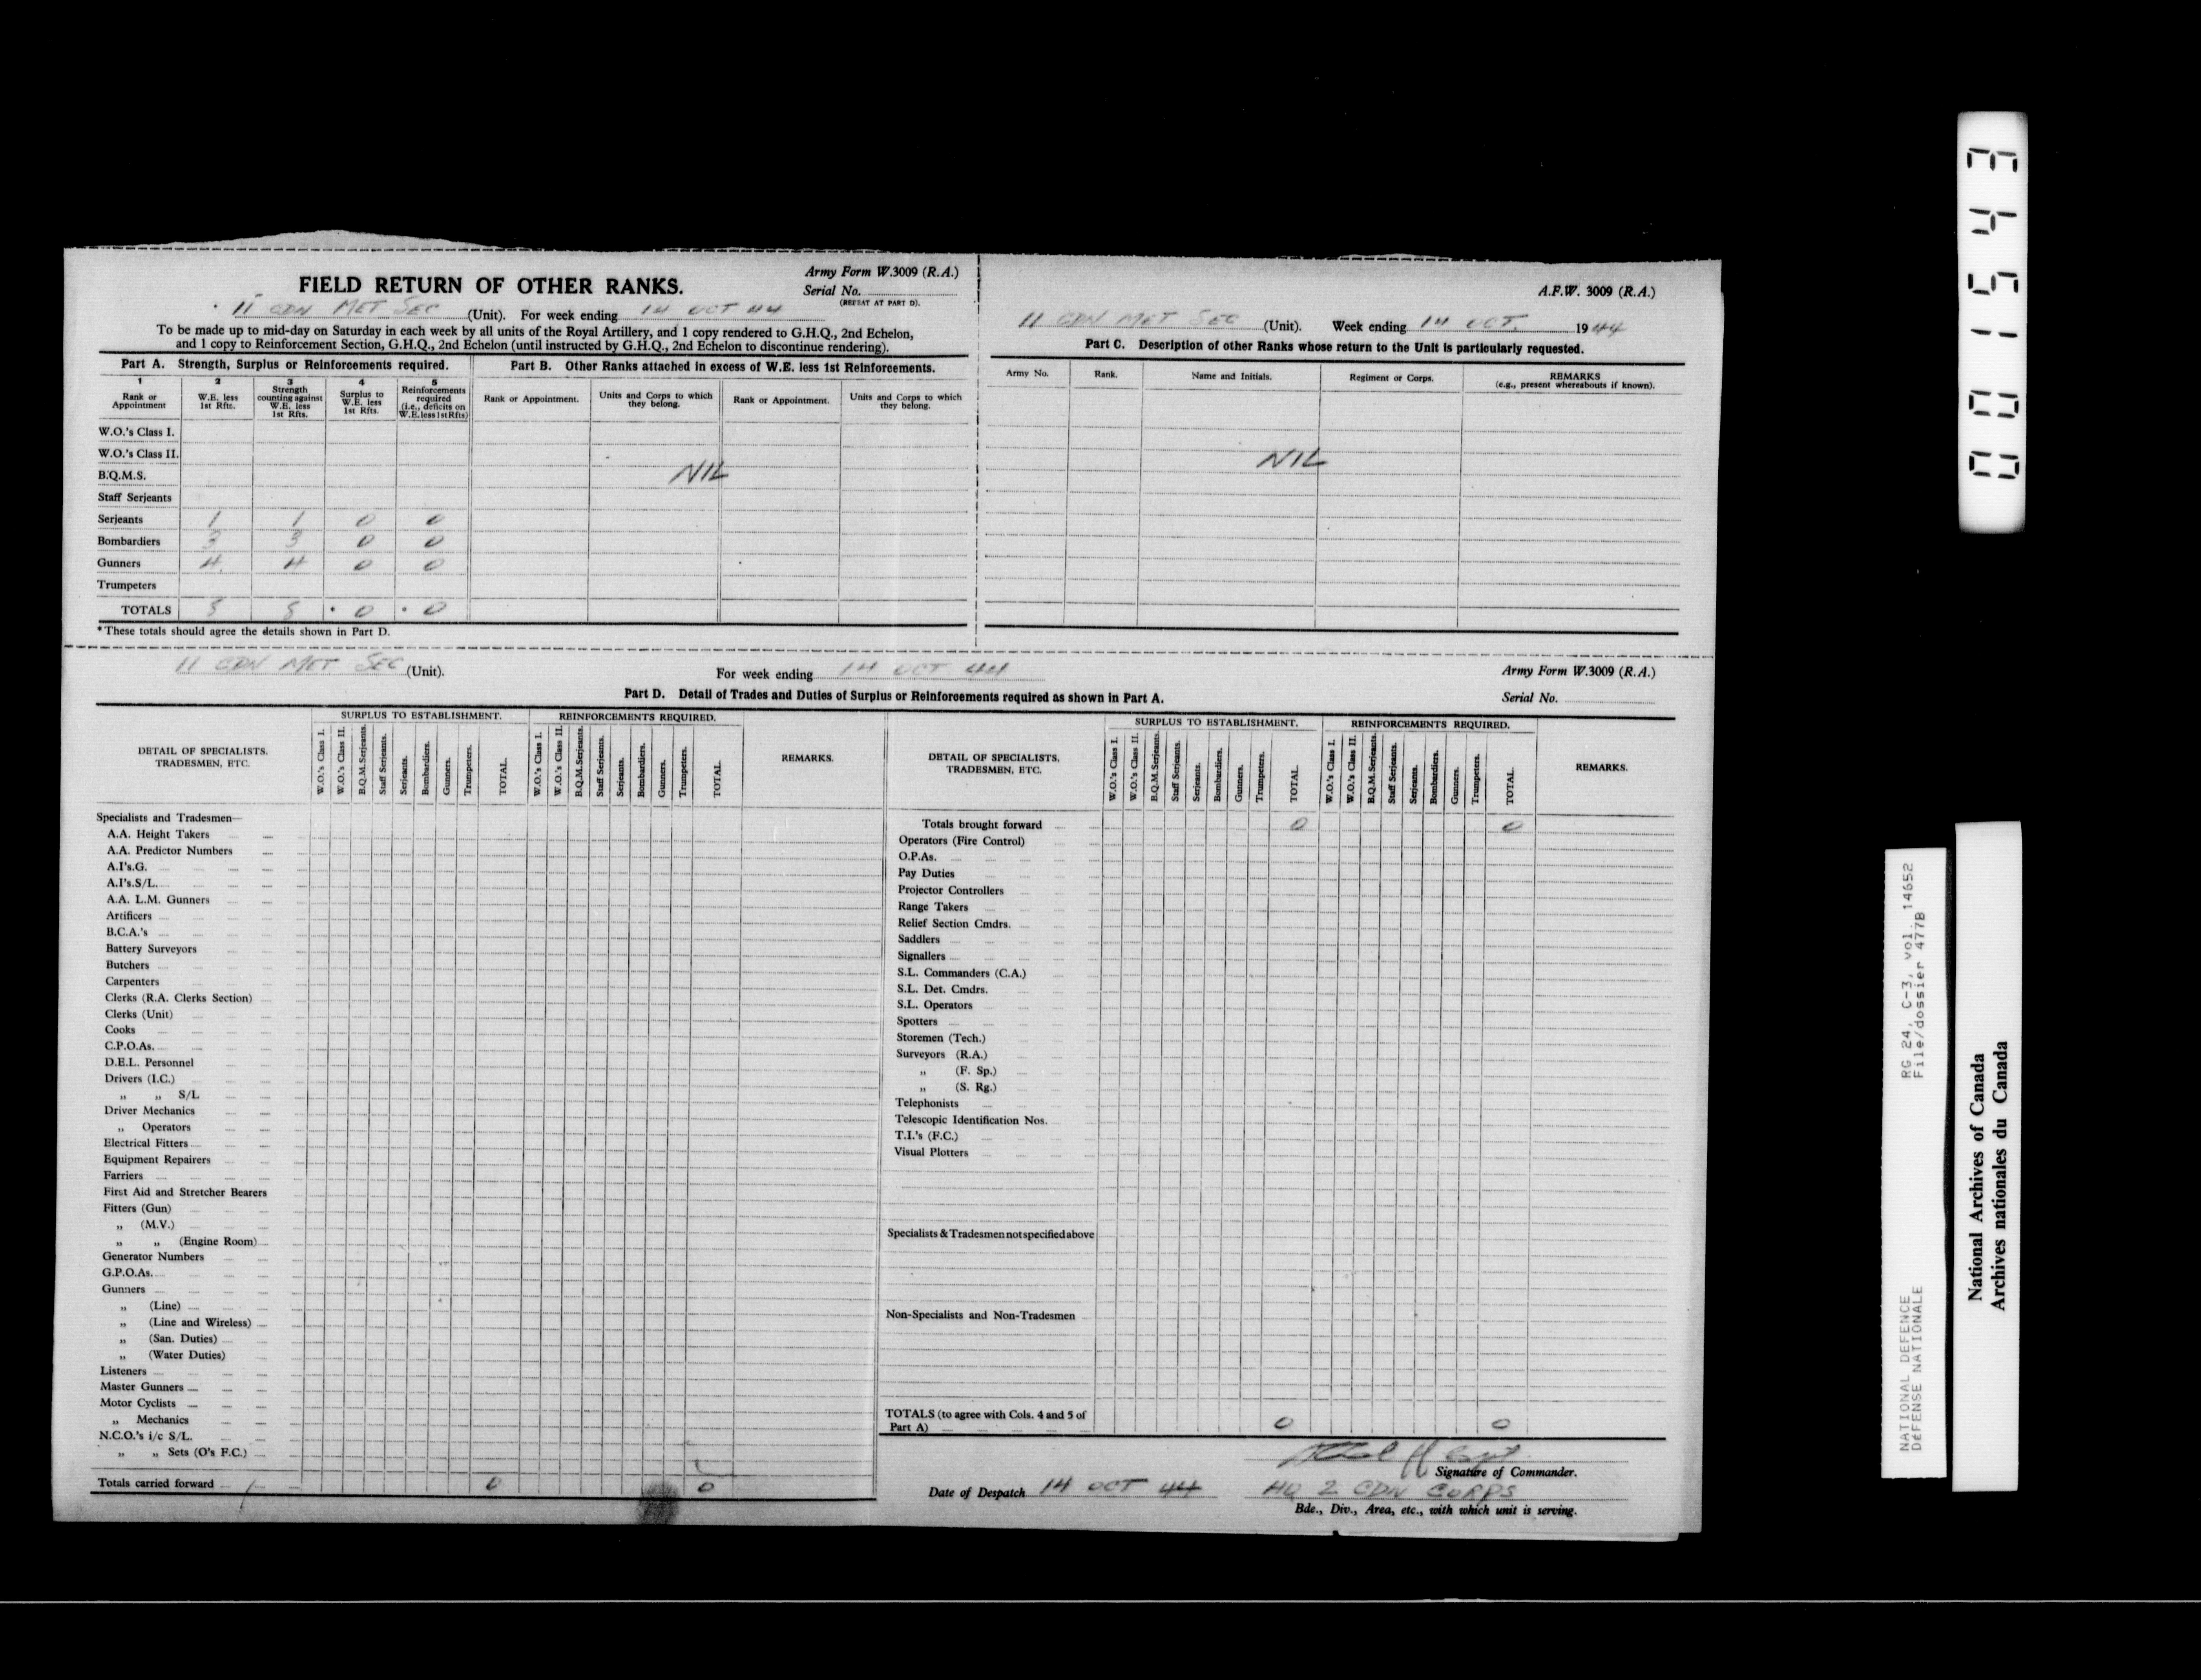 FIELD RETURN OF OTHER RANKS.
Army Form W.3009 (R.A.)
Serial No.
(REPEAT AT PART D).
11 CDN MET SEC (Unit). For week ending 14 OCT 44
To be made up to mid-day on Saturday in each week by all units of the Royal Artillery, and 1 copy rendered to G.H.Q., 2nd Echelon,
and 1 copy to Reinforcement Section, G.H.Q., 2nd Echelon (until instructed by G.H.Q., 2nd Echelon to discontinue rendering).
Part A. Strength, Surplus or Reinforcements required.
1 2 3 4 5
Rank or Appointment
W.E. less 1st Rfts.
Strength counting against W.E. less 1st Rfts.
Surplus to W.E. less 1st Rfts.
Reinforcements required (i.e., deficits on W.E. less 1st Rfts)
W.O.'s Class I.
W.O.'s Class II.
B.Q.M.S.
Staff Serjeants
Serjeants 1 1 0 0
Bombardiers 3 3 0 0
Gunners 4 4 0 0
Trumpeters
TOTALS 8 8 * 0 * 0
* These totals should agree the details shown in Part D.
Part B. Other Ranks attached in excess of W.E. less 1st Reinforcements.
Rank or Appointment.
Units and Corps to which they belong.
Rank or Appointment.
Units and Corps to which they belong.
NIL
A.F.W. 3009 (R.A.)
11 CDN MET SEC (Unit). Week ending 14 OCT. 1944
Part C. Description of other Ranks whose return to the Unit is particularly requested.
Army No. Rank. Name and Initials. Regiment or Corps. REMARKS
(e.g., present whereabouts if known).
NIL
11 CDN MET SEC (Unit). For week ending 14 OCT 44 Army Form W.3009 (R.A.)
Part D. Detail of Trades and Duties of Surplus or Reinforcements required as shown in Part A. Serial No.
DETAIL OF SPECIALISTS, TRADESMEN, ETC.
SURPLUS TO ESTABLISHMENT.
W.O.'s Class I.
W.O.'s Class II.
B.Q.M.Serjeants.
Staff Serjeants.
Serjeants.
Bombardiers.
Gunners.
Trumpeters.
TOTAL.
REINFORCEMENTS REQUIRED.
W.O.'s Class I.
W.O.'s Class II.
B.Q.M.Serjeants.
Staff Serjeants.
Serjeants.
Bombardiers.
Gunners.
Trumpeters.
TOTAL
REMARKS.
Specialists and Tradesmen—
A.A. Height Takers
A.A. Predictor Numbers
A.I's.G.
A.I's.S/L.
A.A. L.M. Gunners
Artificers
B.C.A.'s
Battery Surveyors
Butchers
Carpenters
Clerks (R.A. Clerks Section)
Clerks (Unit)
Cooks
C.P.O.As.
D.E.L. Personnel
Drivers (I.C.)
„ „ S/L
Driver Mechanics
„ Operators
Electrical Fitters
Equipment Repairers
Farriers
First Aid and Stretcher Bearers
Fitters (Gun)
„ (M.V.)
„ „ (Engine Room)
Generator Numbers
G.P.O.As.
Gunners
„ (Line)
„ (Line and Wireless)
„ (San. Duties)
„ (Water Duties)
Listeners
Master Gunners
Motor Cyclists
„ Mechanics
N.C.O.'s i/c S/L.
„ „ Sets (O's F.C.)
Totals carried forward 0 0
DETAIL OF SPECIALISTS, TRADESMEN, ETC.
SURPLUS TO ESTABLISHMENT.
W.O.'s Class I.
W.O.'s Class II.
B.Q.M.Serjeants.
Staff Serjeants.
Serjeants.
Bombardiers.
Gunners.
Trumpeters.
TOTAL.
REINFORCEMENTS REQUIRED.
W.O.'s Class I.
W.O.'s Class II.
B.Q.M.Serjeants.
Staff Serjeants.
Serjeants.
Bombardiers.
Gunners.
Trumpeters.
TOTAL.
REMARKS.
Totals brought forward 0 0
Operators (Fire Control)
O.P.As.
Pay Duties
Projector Controllers
Range Takers
Relief Section Cmdrs.
Saddlers
Signallers
S.L. Commanders (C.A.)
S.L. Det. Cmdrs.
S.L. Operators
Spotters
Storemen (Tech.)
Surveyors (R.A.)
„ (F. Sp.)
„ (S. Rg.)
Telephonists
Telescopic Identification Nos.
T.I.'s (F.C.)
Visual Plotters
Specialists & Tradesmen not specified above
Non-Specialists and Non-Tradesmen
TOTALS (to agree with Cols. 4 and 5 of
Part A) 0 0
Capt.
Signature of Commander.
Date of Despatch 14 OCT 44 HQ 2 CDN CORPS
Bde., Div., Area, etc., with which unit is serving.
001543
NATIONAL DEFENCE RG 24, C-3, vol. 14652
DÉFENSE NATIONALE File/dossier 477B
National Archives of Canada
Archives nationales du Canada